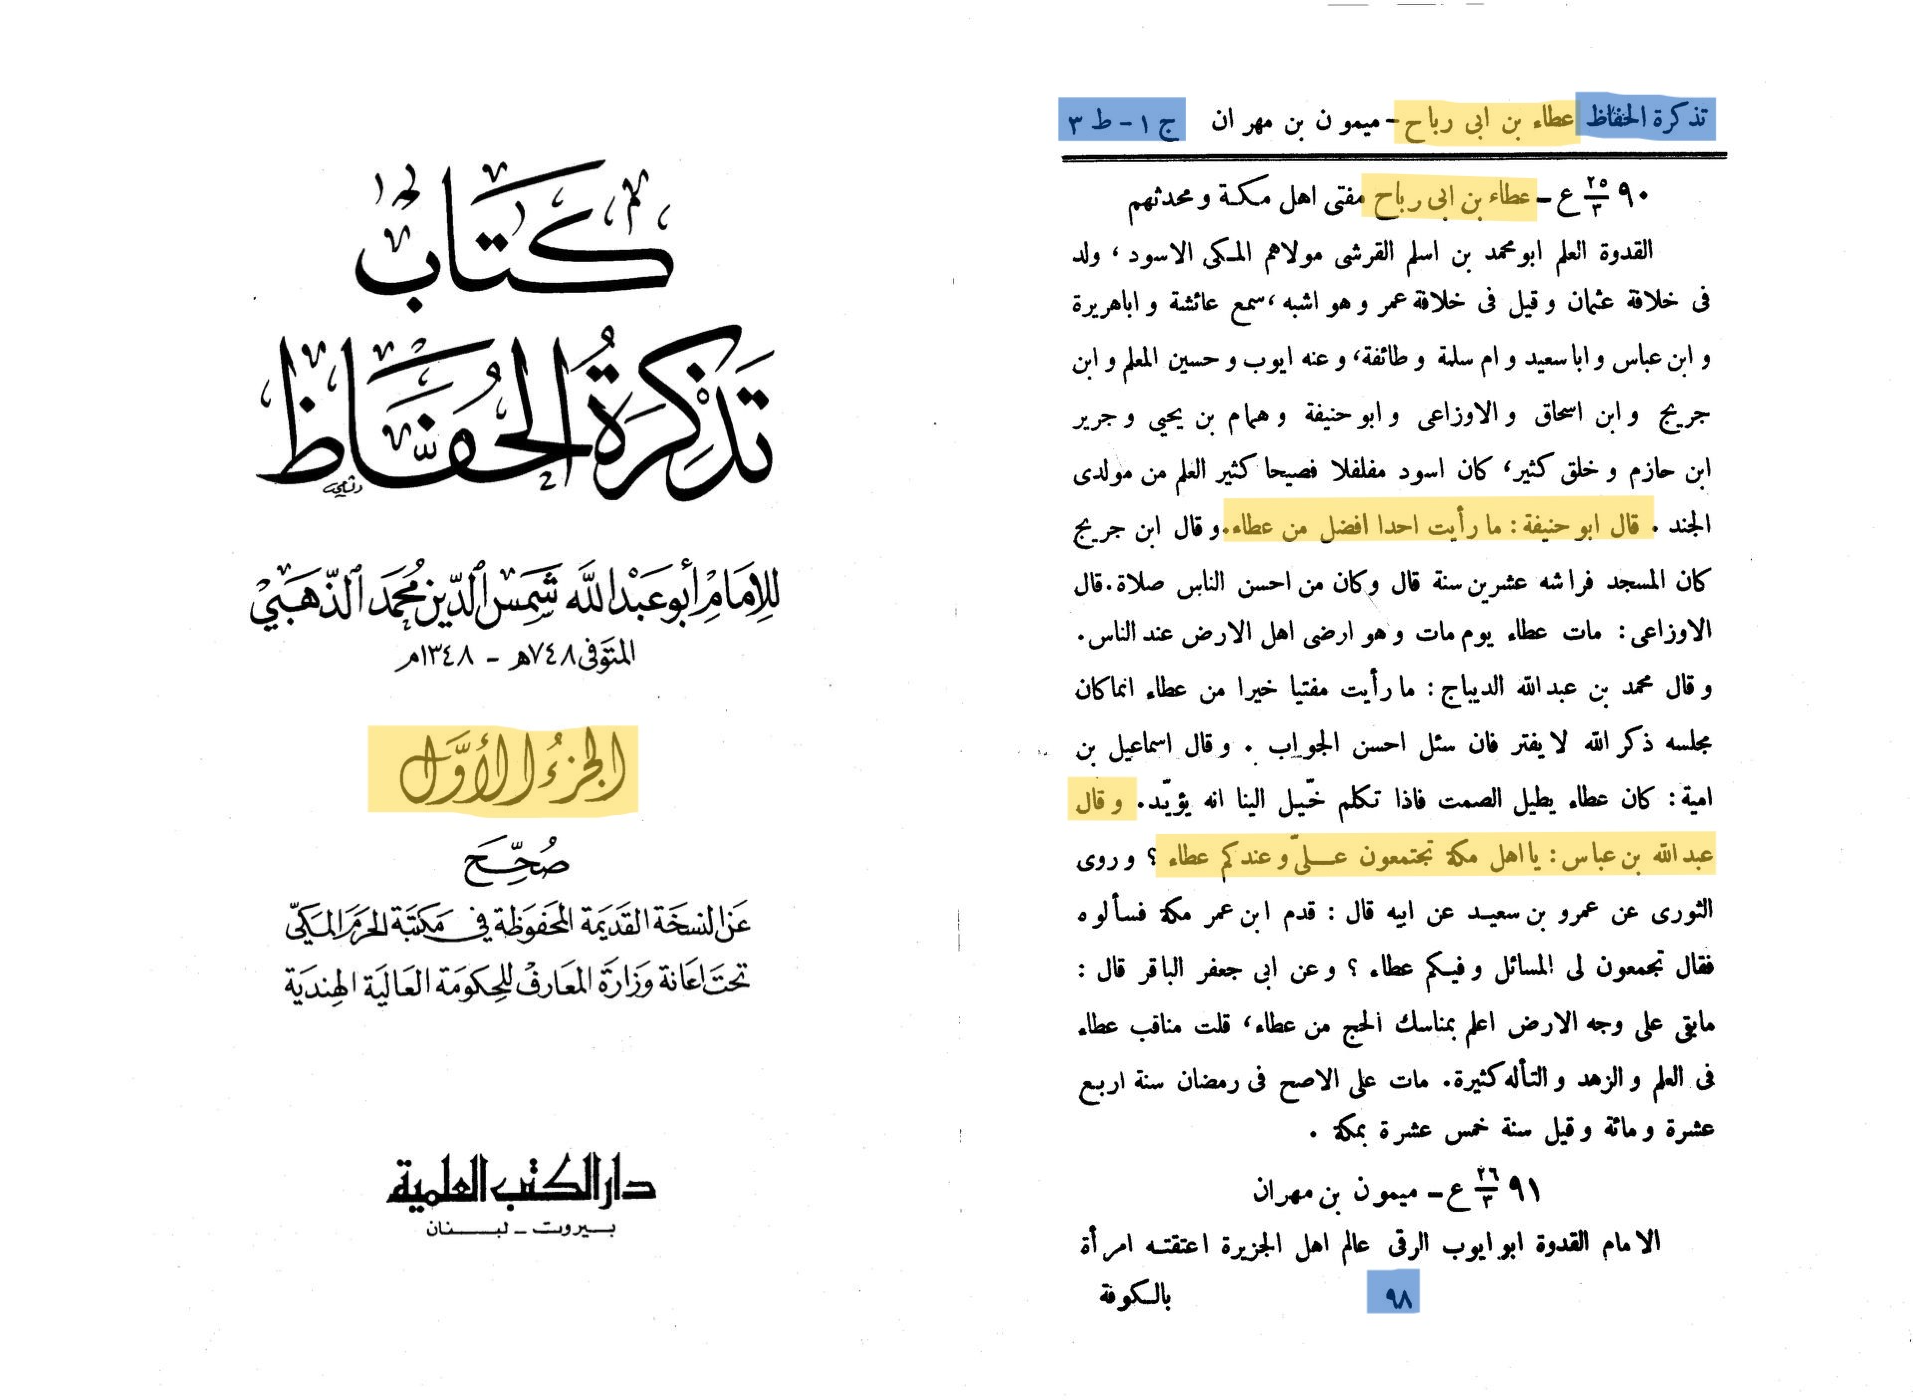 كتاب
تَذكِرَةُ الحُفَّاظ
للإمَامِ أبو عَبْد اللَّه شَمسْ الدّين مُحمَّد الذّهَبيّ
المتَوفى ٧٤٨هـ - ١٣٤٨م
الجزءُ الأوّل
صُحِّحَ
عَن النسخَة القَديمَة المحَفوَظة في مَكتبَة الحرَم المَكيّ
تحتَ اعَانة وَزارَة المعَارفْ للحِكومَة العَاليَة الهِنديَة
دار الكتب العلمية
بيروت - لبنان
تذكرة الحفاظ عطاء بن ابى رباح - ميمون بن مهران ج ١ - ط ٣
٩٠ ٢٥/٣ ع - عطاء بن ابى رباح مفتى اهل مكة و محدثهم
القدوة العلم ابو محمد بن اسلم القرشى مولاهم المكى الاسود ، ولد
فى خلافة عثمان و قيل فى خلافة عمر و هو اشبه ، سمع عائشة و اباهريرة
و ابن عباس و ابا سعيد و ام سلمة و طائفة، و عنه ايوب و حسين المعلم و ابن
جريج و ابن اسحاق و الاوزاعى و ابو حنيفة و همام بن يحيى و جرير
ابن حازم و خلق كثير، كان اسود مفلفلا فصيحا كثير العلم من مولدى
الجند . قال ابو حنيفة : ما رأيت احدا افضل من عطاء. و قال ابن جريج
كان المسجد فراشه عشرين سنة قال وكان من احسن الناس صلاة. قال
الاوزاعى : مات عطاء يوم مات و هو ارضى اهل الارض عند الناس .
و قال محمد بن عبد الله الديباج : ما رأيت مفتيا خيرا من عطاء انما كان
مجلسه ذكر الله لا يفتر فان سئل احسن الجواب . و قال اسماعيل بن
امية : كان عطاء يطيل الصمت فاذا تكلم خيّل الينا انه يؤيّد . و قال
عبد الله بن عباس : يا اهل مكة تجتمعون علىّ و عندكم عطاء ؟ و روى
الثورى عن عمرو بن سعيد عن ابيه قال : قدم ابن عمر مكة فسألوه
فقال تجمعون لى المسائل و فيكم عطاء ؟ و عن ابى جعفر الباقر قال :
مابقى على وجه الارض اعلم بمناسك الحج من عطاء، قلت مناقب عطاء
فى العلم و الزهد و التأله كثيرة. مات على الاصح فى رمضان سنة اربع
عشرة و مائة و قيل سنة خمس عشرة بمكة .
٩١ ٢٦/٣ ع - ميمون بن مهران
الامام القدوة ابو ايوب الرقى عالم اهل الجزيرة اعتقته امرأة
بالكوفة
٩٨